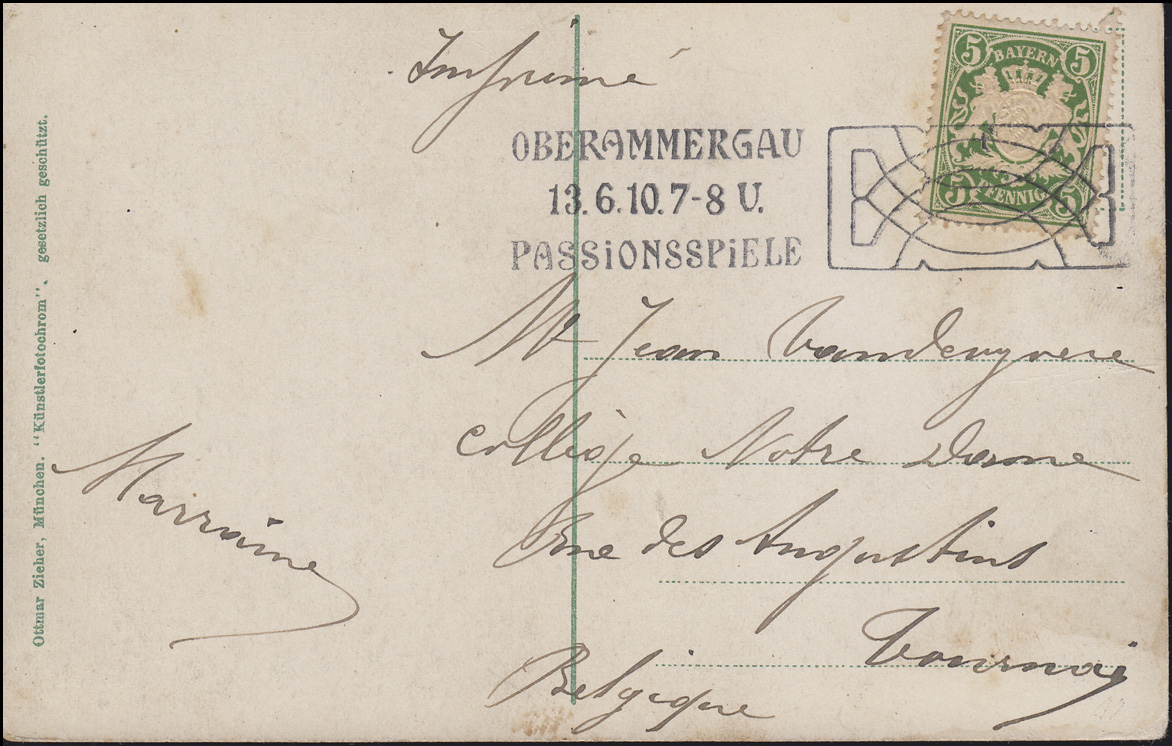 Imprimé
5 BAYERN 5
5 PFENNIG 5
OBERAMMERGAU
13.6.10.7-8 U.
PASSiONSSPiELE
Mr Jean
Collège Notre Dame
Rue des Augustins
Tournai
Belgique
Marraine
Ottmar Zieher, München. "Künstlerfotochrom". gesetzlich geschützt.